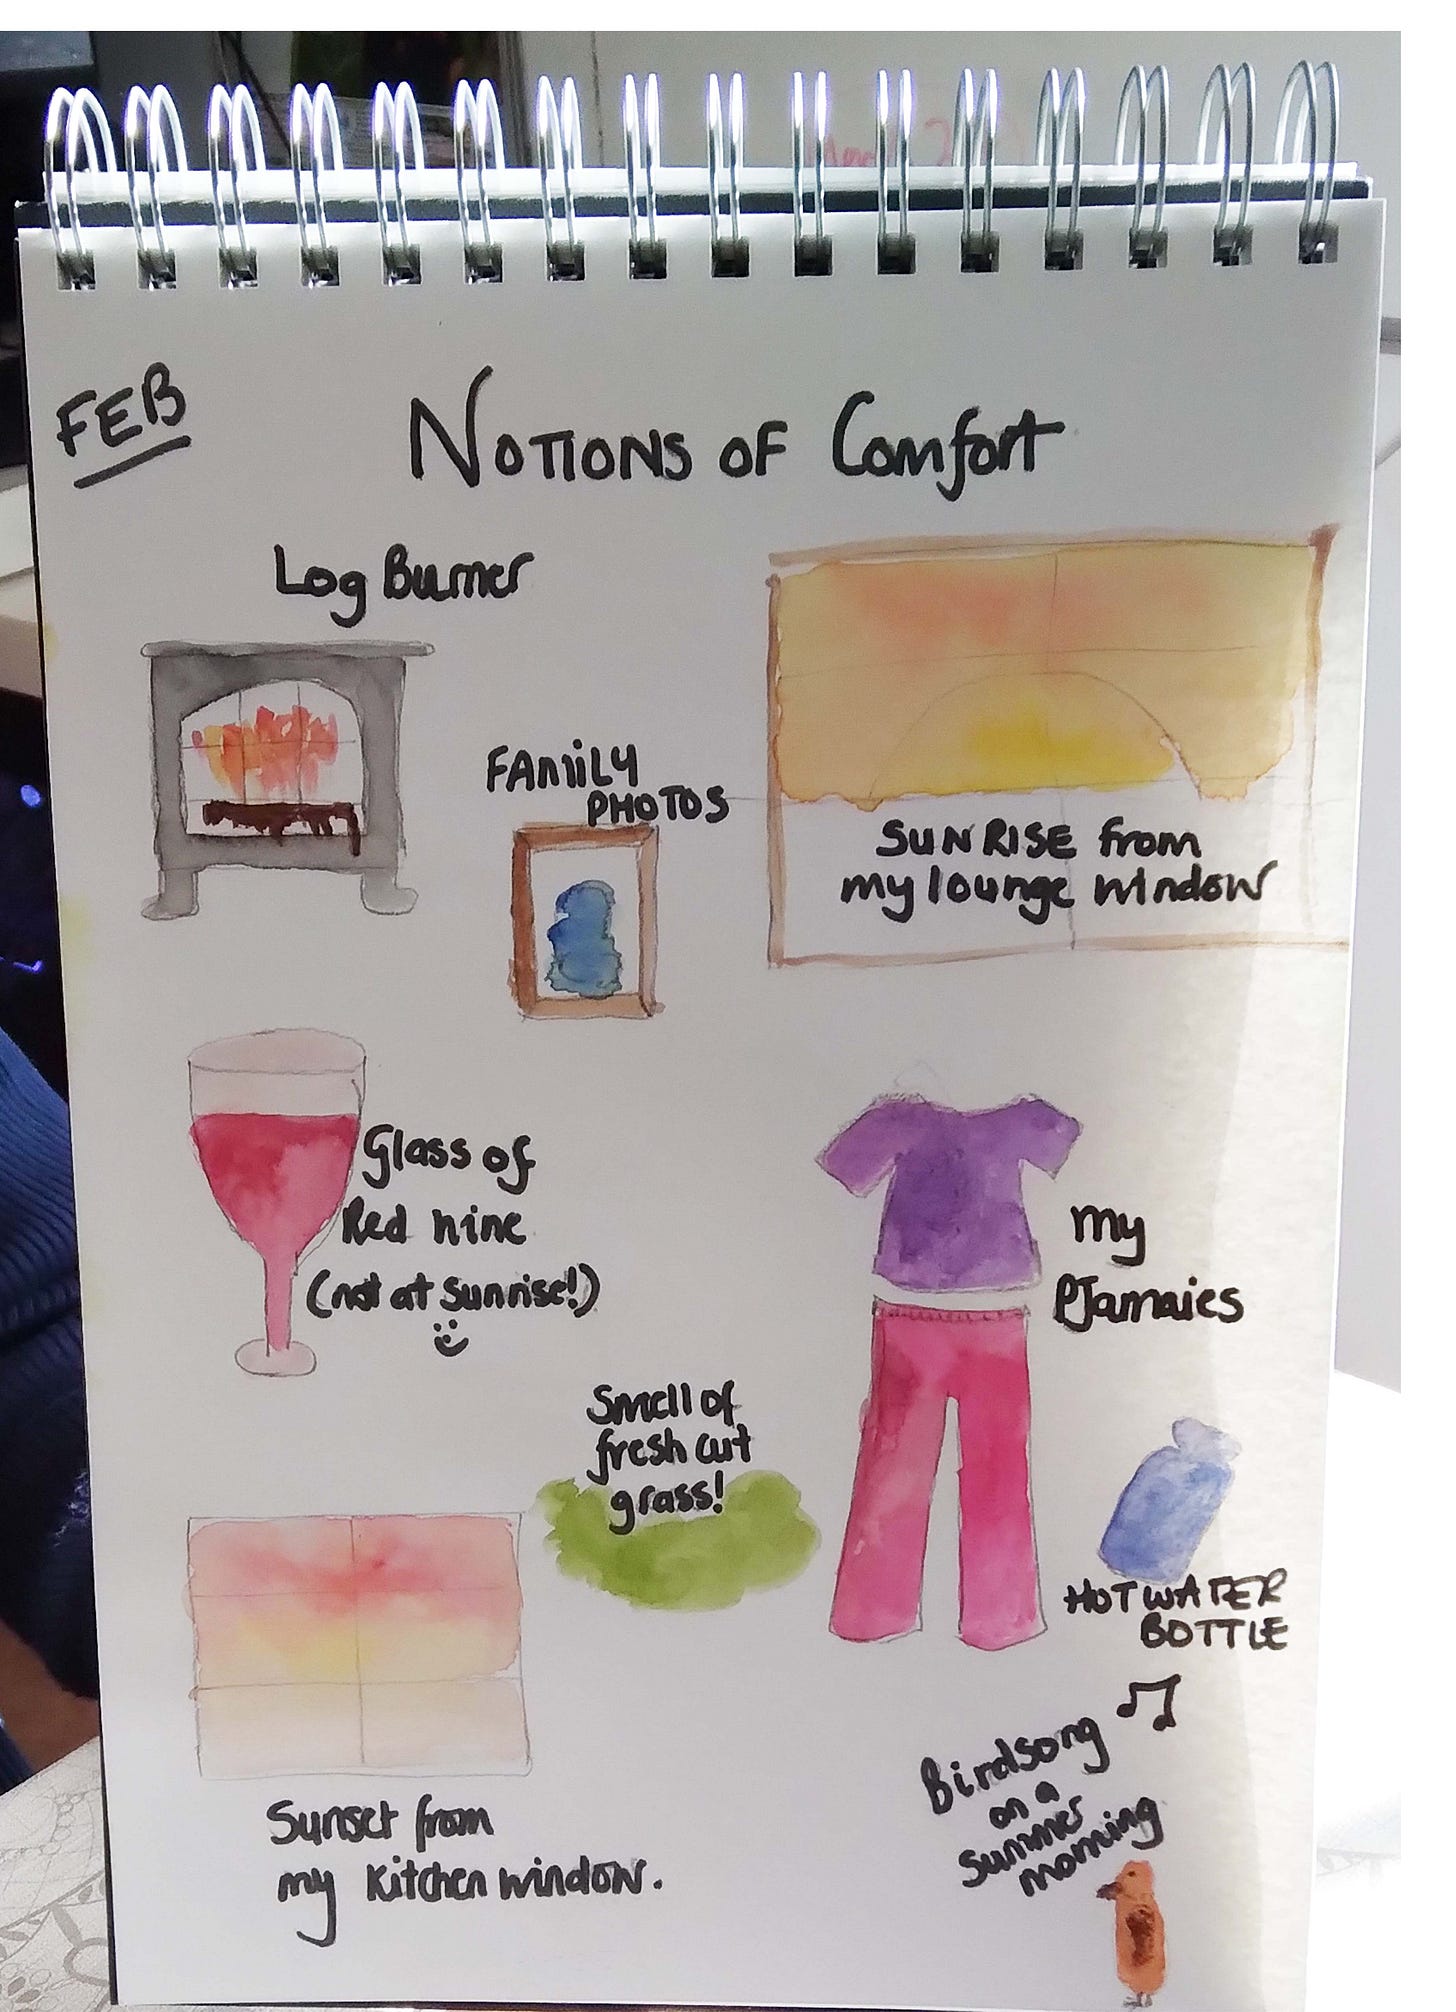 FEB
NOTIONS OF Comfort
Log Burner
FAMILY
PHOTOS
SUNRISE from
my lounge window
Glass of
Red wine
(not at sunrise!)
my
PJamaies
Smell of
fresh cut
grass!
HOT WATER
BOTTLE
Birdsong
on a
summer
morning
Sunset from
my kitchen window.